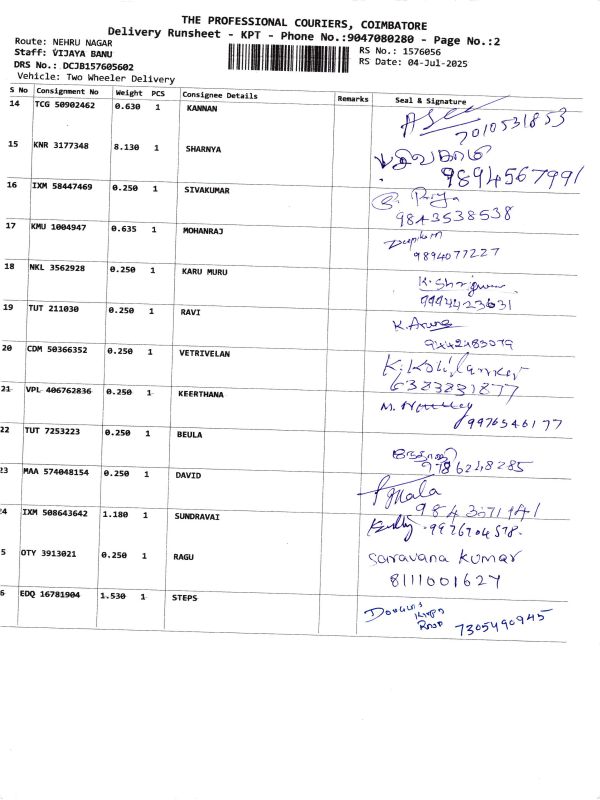 THE PROFESSIONAL COURIERS, COIMBATORE
Delivery Runsheet - KPT - Phone No.:9047080280 - Page No.:2
Route: NEHRU NAGAR
Staff: VIJAYA BANU
DRS No.: DCJB157605602
Vehicle: Two Wheeler Delivery
RS No.: 1576056
RS Date: 04-Jul-2025
S No Consignment No Weight PCS Consignee Details Remarks Seal & Signature
14 TCG 50902462 0.630 1 KANNAN
7010531853
15 KNR 3177348 8.130 1 SHARNYA
9894567991
16 IXM 58447469 0.250 1 SIVAKUMAR
S. Priya
9843538538
17 KMU 1004947 0.635 1 MOHANRAJ
9894077227
18 NKL 3562928 0.250 1 KARU MURU
9994423631
19 TUT 211030 0.250 1 RAVI
K. Aruna
9442483079
20 CDM 50366352 0.250 1 VETRIVELAN
6383231877
21 VPL 406762836 0.250 1 KEERTHANA
9976546177
22 TUT 7253223 0.250 1 BEULA
9786248285
23 MAA 574048154 0.250 1 DAVID
9843071941
24 IXM 508643642 1.180 1 SUNDRAVAI
5 OTY 3913021 0.250 1 RAGU
Saravana Kumar
8111001627
6 EDQ 16781904 1.530 1 STEPS
7305490945